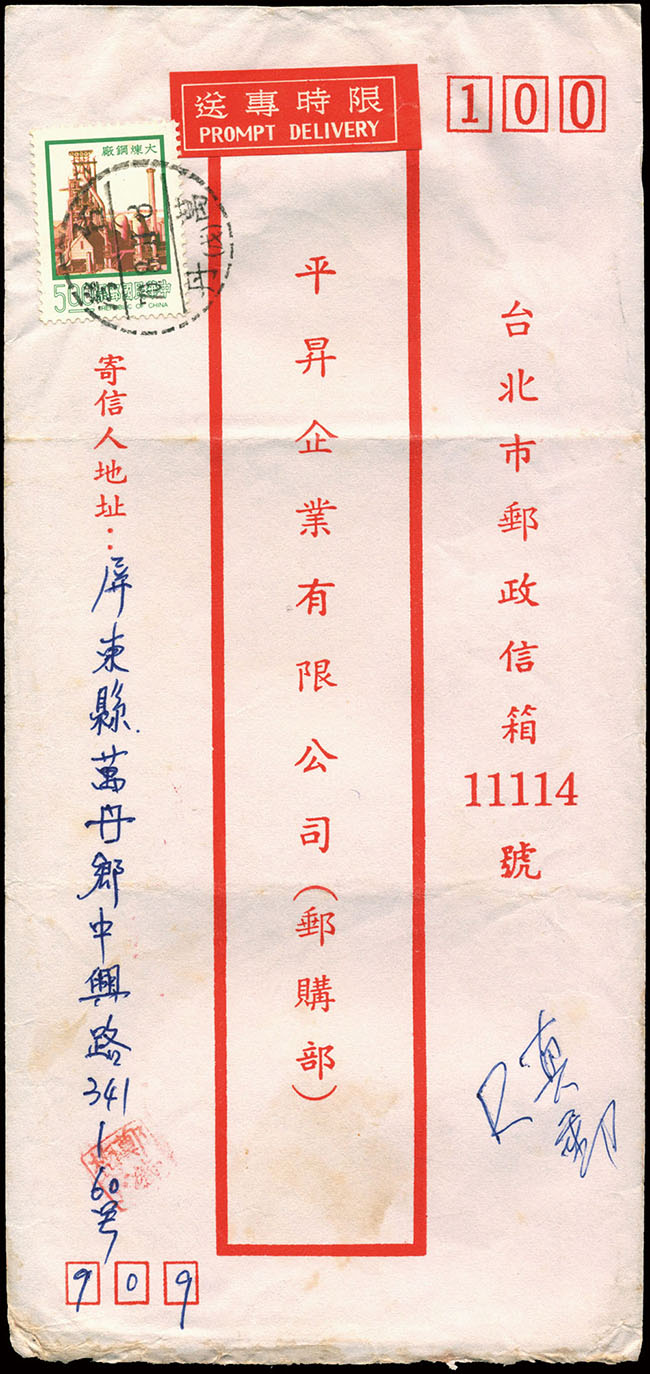 限時專送
PROMPT DELIVERY
100
台北市郵政信箱11114號
平昇企業有限公司(郵購部)
大煉鋼廠
500
中華民國郵票
REPUBLIC OF CHINA
萬丹
寄信人地址：屏東縣萬丹鄉中興路341
160号
909